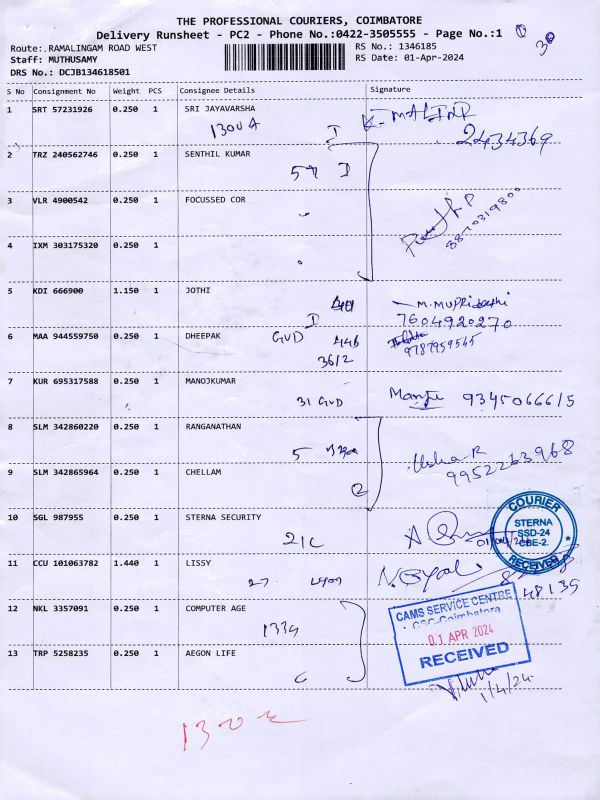 THE PROFESSIONAL COURIERS, COIMBATORE
Delivery Runsheet - PC2 - Phone No.:0422-3505555 - Page No.:1
Route:.RAMALINGAM ROAD WEST
Staff: MUTHUSAMY
DRS No.: DCJB134618501
RS No.: 1346185
RS Date: 01-Apr-2024
S No Consignment No Weight PCS Consignee Details Signature
1 SRT 57231926 0.250 1 SRI JAYAVARSHA
1300 A
2434369
2 TRZ 240562746 0.250 1 SENTHIL KUMAR
3 VLR 4900542 0.250 1 FOCUSSED COR
8870319800
4 IXM 303175320 0.250 1
5 KDI 666900 1.150 1 JOTHI
7604920270
6 MAA 944559750 0.250 1 DHEEPAK GVD 446
36/2
9787959565
7 KUR 695317588 0.250 1 MANOJKUMAR
31 GVD
Manju 9345066615
8 SLM 342860220 0.250 1 RANGANATHAN
5
Usha R
9952263968
9 SLM 342865964 0.250 1 CHELLAM
2
10 SGL 987955 0.250 1 STERNA SECURITY
21C
COURIER
STERNA
SSD-24
CBE-2.
RECEIVED
11 CCU 101063782 1.440 1 LISSY
27
N. Gopal
48139
12 NKL 3357091 0.250 1 COMPUTER AGE
1334
CAMS SERVICE CENTRE
CSC-Coimbatore
01 APR 2024
RECEIVED
13 TRP 5258235 0.250 1 AEGON LIFE
1/4/24
1302